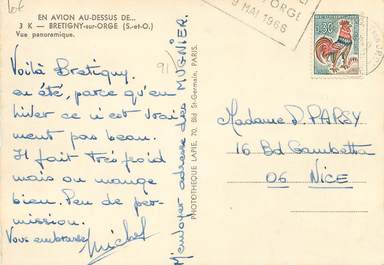 EN AVION AU-DESSUS DE...
3 K — BRETIGNY-sur-ORGE (S.-et-O.)
Vue panoramique.
Voilà Bretigny.
en été, parce qu'en
hiver ce n'est vrai
ment pas beau.
Il fait très froid
mais on mange
bien. Peu de per-
mission.
Vous embrasse
Michel
M'envoyer adresse des MUGNIER.
91
PHOTOTHEQUE LAPIE, 70, Bld St-Germain, PARIS.
ORGE
MAI 1966
0,30
Madame D. PARSY
16 Bd Gambetta
06 NICE